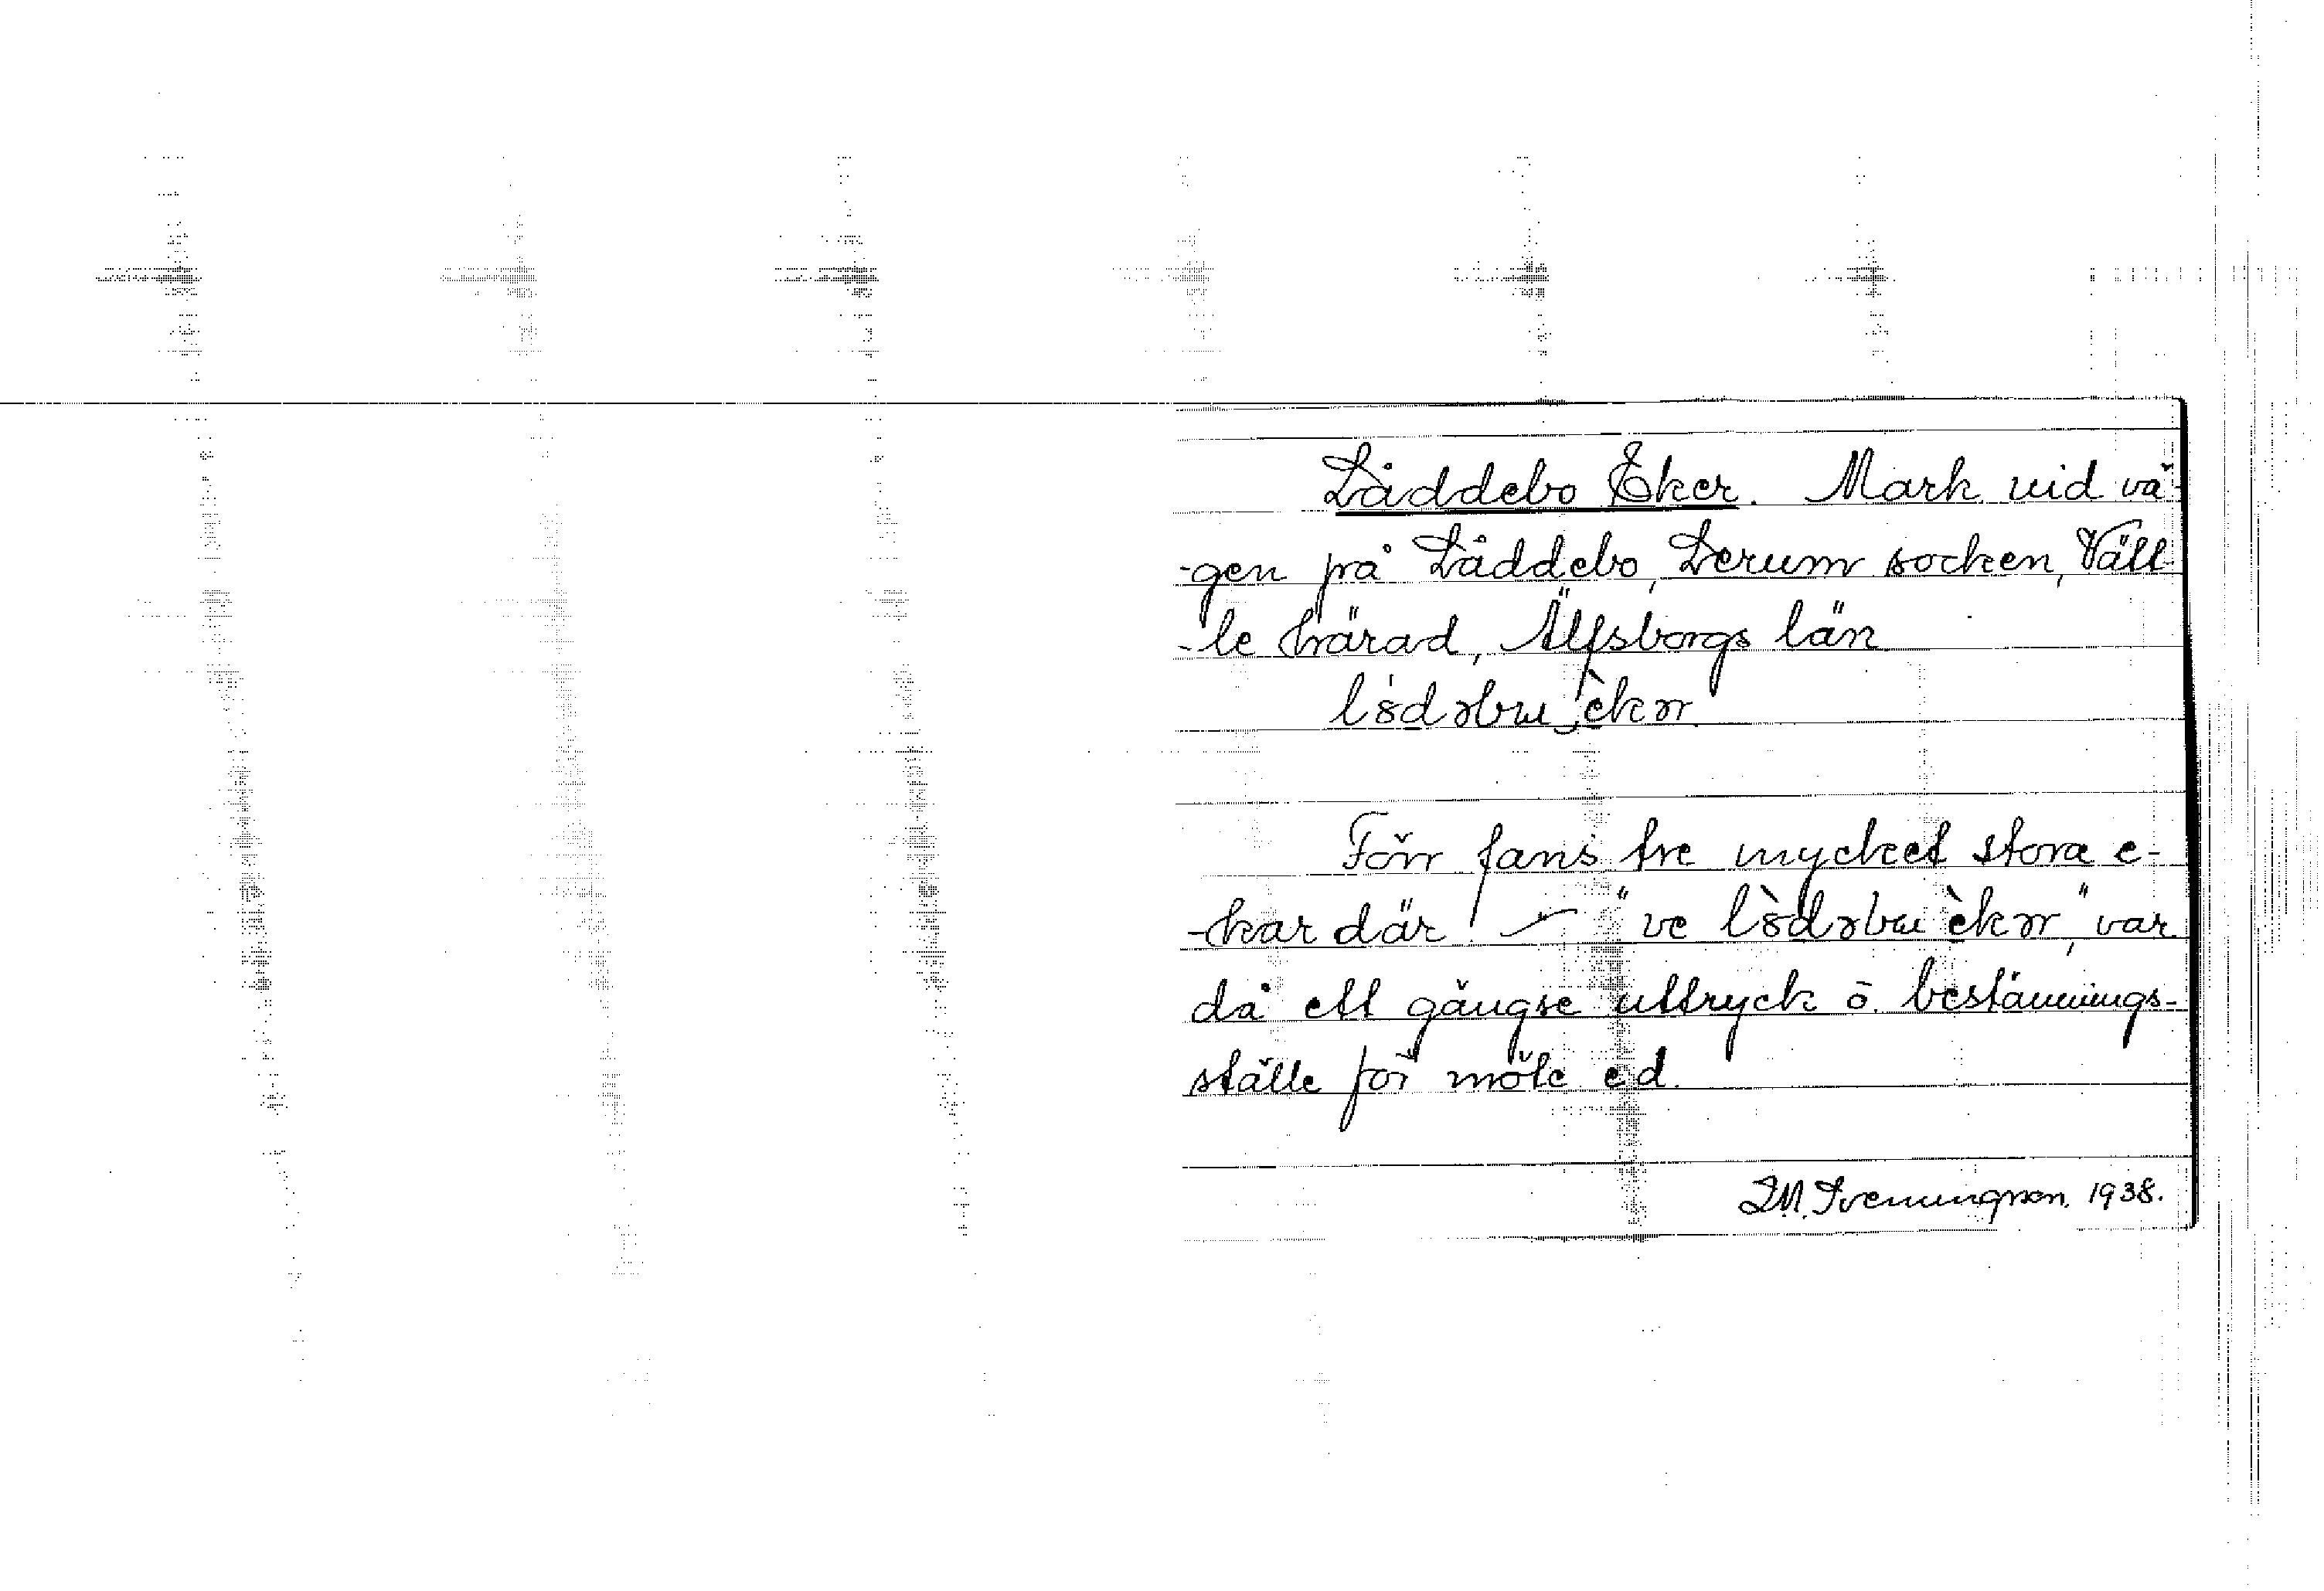 Låddebo Eker. Mark vid vä-
-gen på Låddebo, Lerum socken, Vätt-
-le härad, Älfsborgs län
Förr fans tre mycket stora e-
-kar där! — "ve lòdəbu èkər", var
då ett gängse uttryck o. bestämnings-
ställe för möte e d.
1938.